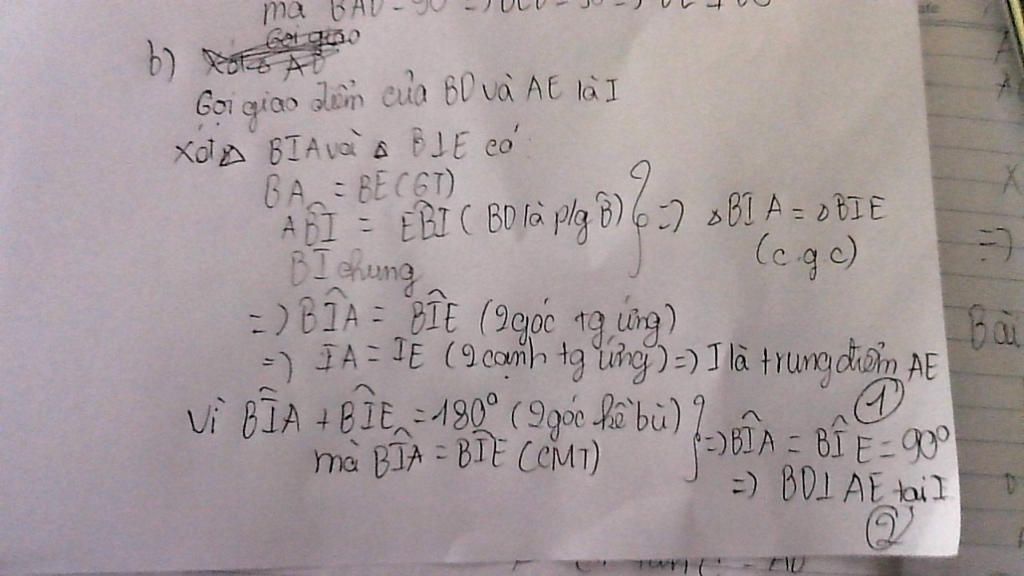 mà BAD = 90
b) Gọi giao
Gọi giao điểm của BD và AE là I
Xét △ BIA và △ BIE có
BA = BE (GT)
AB̂I = EB̂I ( BD là p/g B̂ ) } => △BIA = △BIE
BI chung (c.g.c)
=> BÎA = BÎE (2 góc tg ứng)
=> IA = IE (2 cạnh tg ứng) => I là trung điểm AE
①
Vì BÎA + BÎE = 180° (2 góc kề bù) } => BÎA = BÎE = 90°
mà BÎA = BÎE (CMT)
=> BD⊥AE tại I
②
=>
Bài